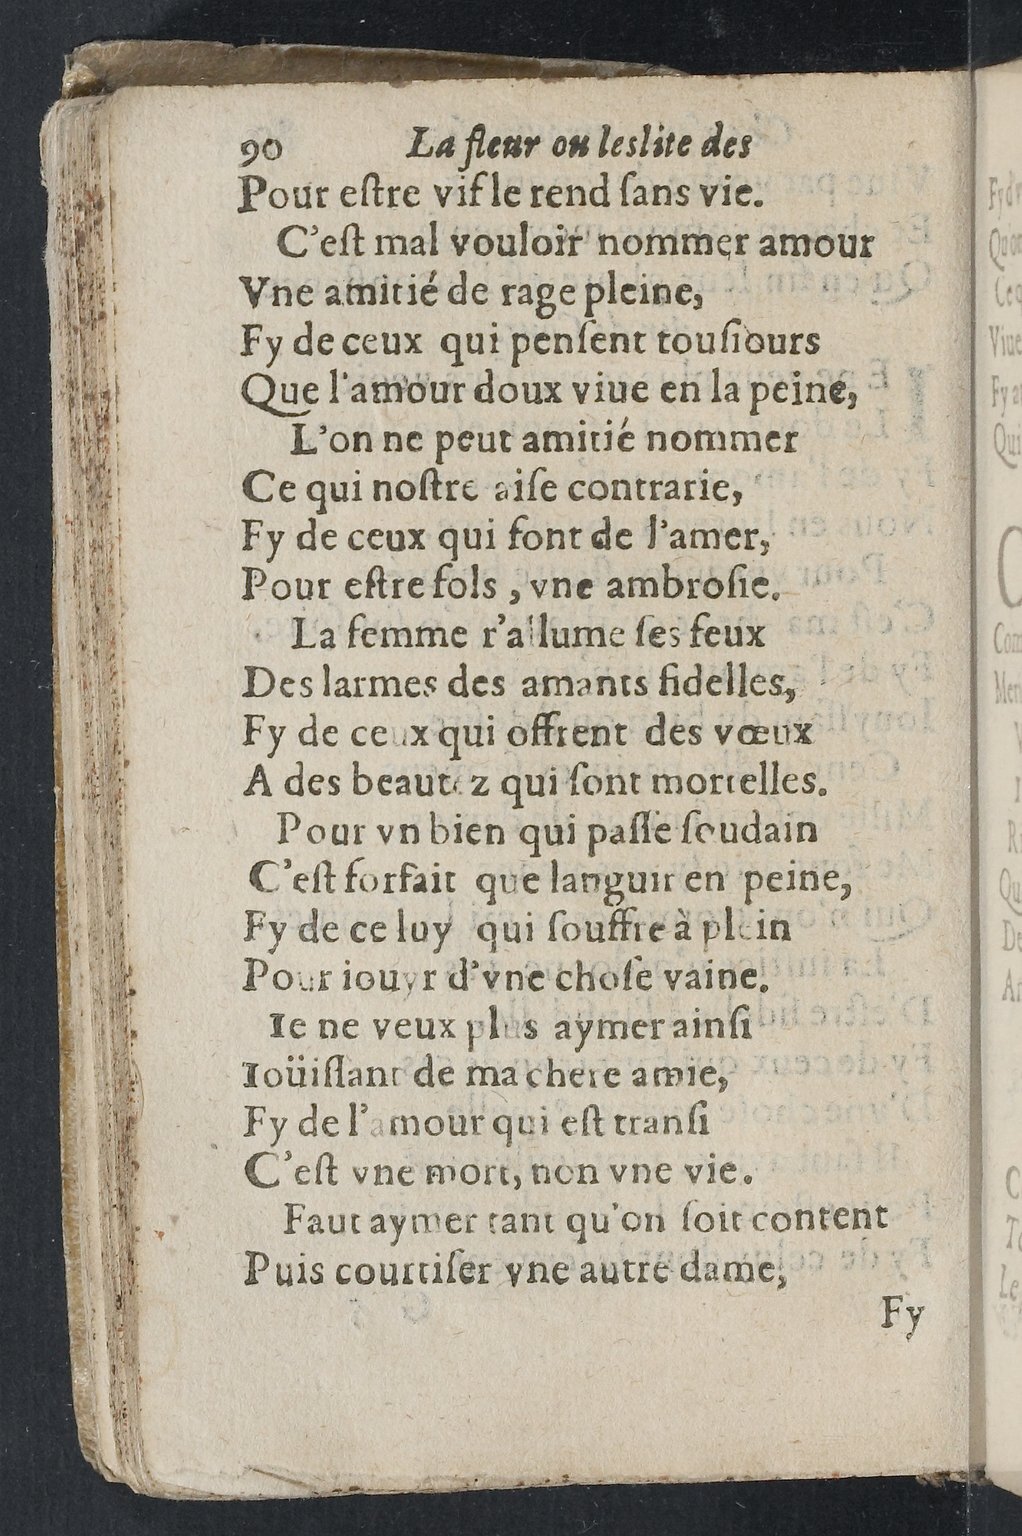 90 La fleur ou leslite des
Pour eſtre vif le rend ſans vie.
C'eſt mal vouloir nommer amour
Vne amitié de rage pleine,
Fy de ceux qui penſent touſiours
Que l'amour doux viue en la peine,
L'on ne peut amitié nommer
Ce qui noſtre aiſe contrarie,
Fy de ceux qui font de l'amer,
Pour eſtre fols , vne ambroſie.
La femme r'allume ſes feux
Des larmes des amants fidelles,
Fy de ceux qui offrent des vœux
A des beautez qui ſont mortelles.
Pour vn bien qui paſſe ſoudain
C'eſt forfait que languir en peine,
Fy de ce luy qui ſouffre à plein
Pour iouyr d'vne choſe vaine.
Ie ne veux plus aymer ainſi
Ioüiſſant de ma chere amie,
Fy de l'amour qui eſt tranſi
C'eſt vne mort, non vne vie.
Faut aymer tant qu'on ſoit content
Puis courtiſer vne autre dame,
Fy